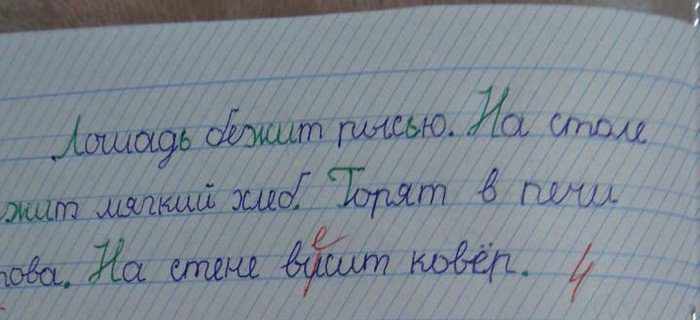 Лошадь бежит рысью. На столе
жит мягкий хлеб. Горят в печи
рова. На стене вусит ковёр. 4
е